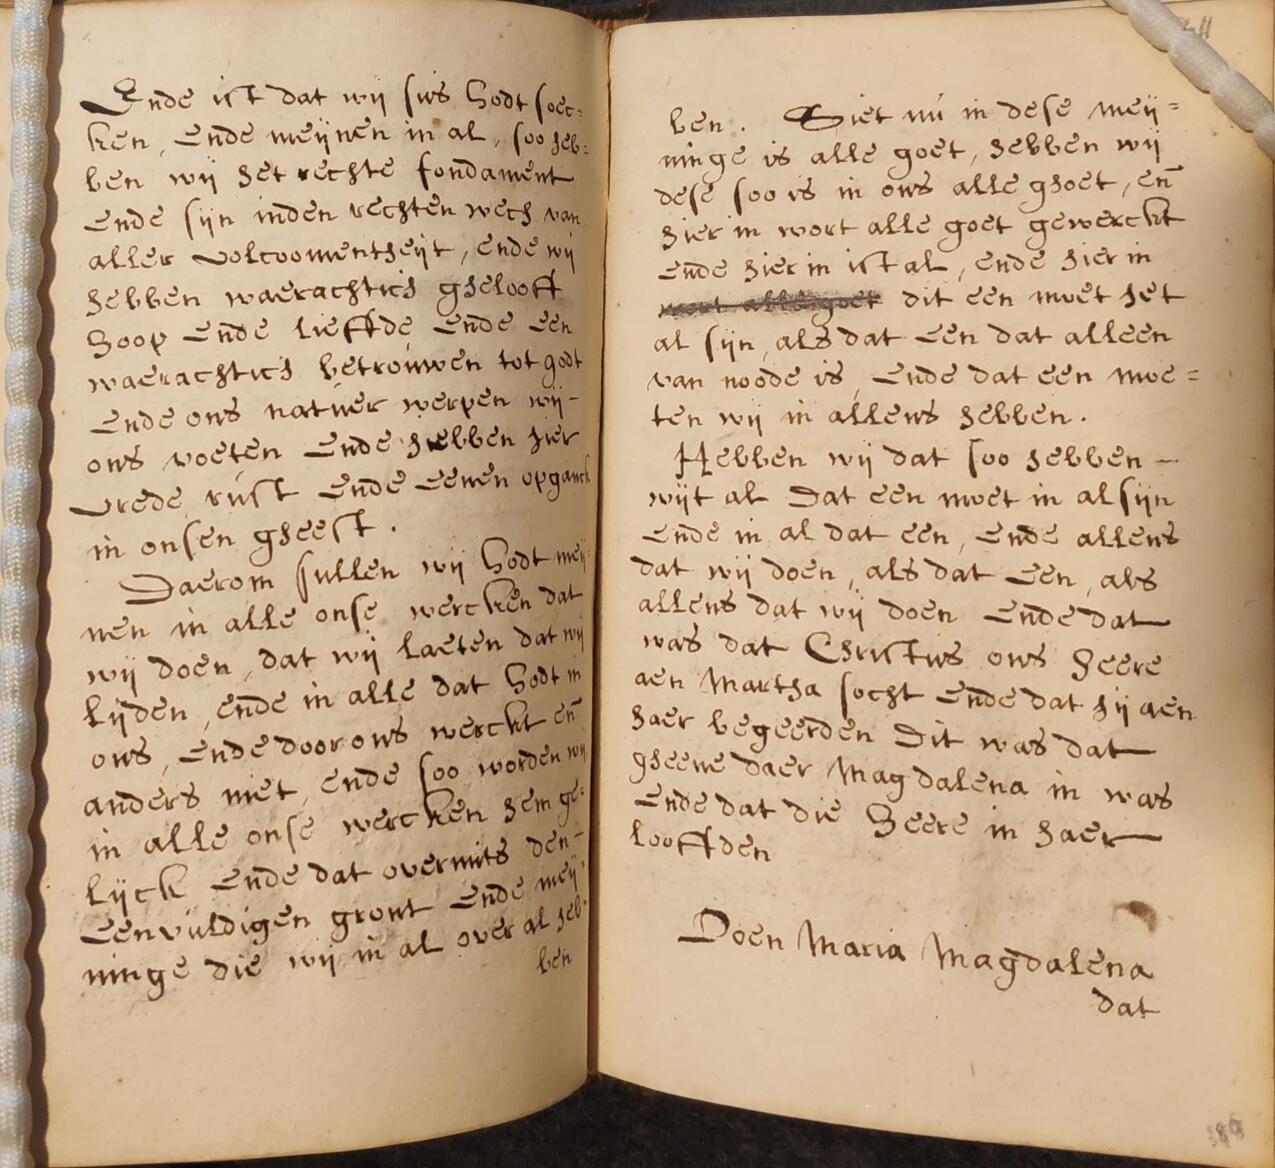 Ende ist dat wij sus Godt soec-
ken, ende meijnen in al, soo heb-
ben wij het rechte fondament
ende sijn inden rechten wech van
aller volcoomentheijt, ende wij
hebben waerachtich ghelooff
hoop ende lieffde ende een
waerachtich betrouwen tot godt
ende ons natuer werpen wij -
ons voeten ende hebben hier
vrede rúst ende eenen opganck
in onsen gheest.
Daerom sullen wij Godt meij-
nen in alle onse wercken dat
wij doen, dat wij laeten dat wij
lijden, ende in alle dat Godt in
ons, ende door ons werckt en̄
anders niet, ende soo worden wij
in alle onse wercken hem ge-
lijck ende dat overmits den -
eenvúldigen gront ende meij-
ninge die wij in al over al heb-
ben
ben. Siet nú in dese meij=
ninge is alle goet, hebben wij
dese soo is in ons alle ghoet, en̄
hier in wort alle goet gewerckt
ende hier in ist al, ende hier in
wort alle goet dit een moet het
al sijn, als dat een dat alleen
van noode is, ende dat een moe=
ten wij in allens hebben.
Hebben wij dat soo hebben -
wijt al dat een moet in al sijn
ende in al dat een, ende allens
dat wij doen, als dat een, als
allens dat wij doen ende dat
was dat Christus ons heere
aen Martha socht ende dat hij aen
haer begeerden dit was dat
gheene daer Magdalena in was
ende dat die Heere in haer
looffden
Doen Maria Magdalena
dat